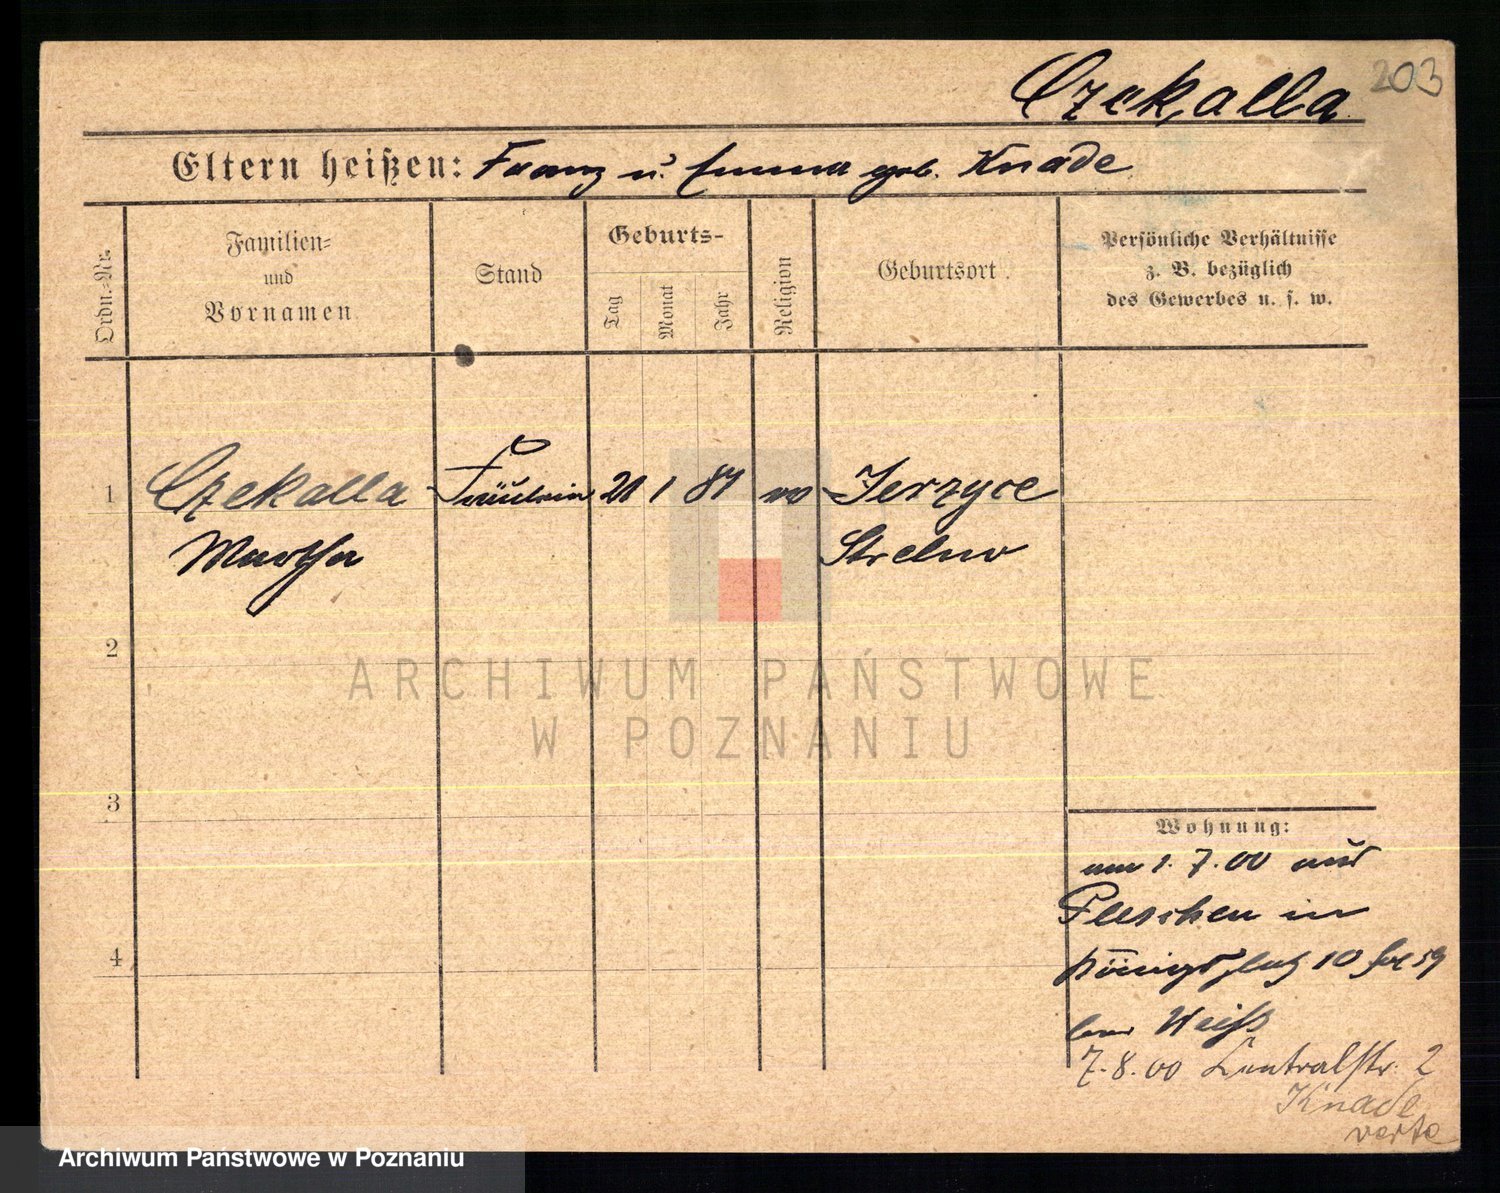 203
Czekalla.
Eltern heißen: Franz u. Emma geb. Knade
Ordn.-Nr.
Familien-
und
Vornamen
Stand
Geburts-
Tag
Monat
Jahr
Religion
Geburtsort
Persönliche Verhältnisse
z. B. bezüglich
des Gewerbes u. s. w.
1 Czekalla Fräulein 21 1 81 Jerzyce
Martha Strelno
2
ARCHIWUM PAŃSTWOWE
W POZNANIU
3
Wohnung:
am 1.7.00 aus
Pleschen in
4
Königsplatz 10 59
bei Weiß
7.8.00 Centralstr. 2
Knade
verte
Archiwum Państwowe w Poznaniu